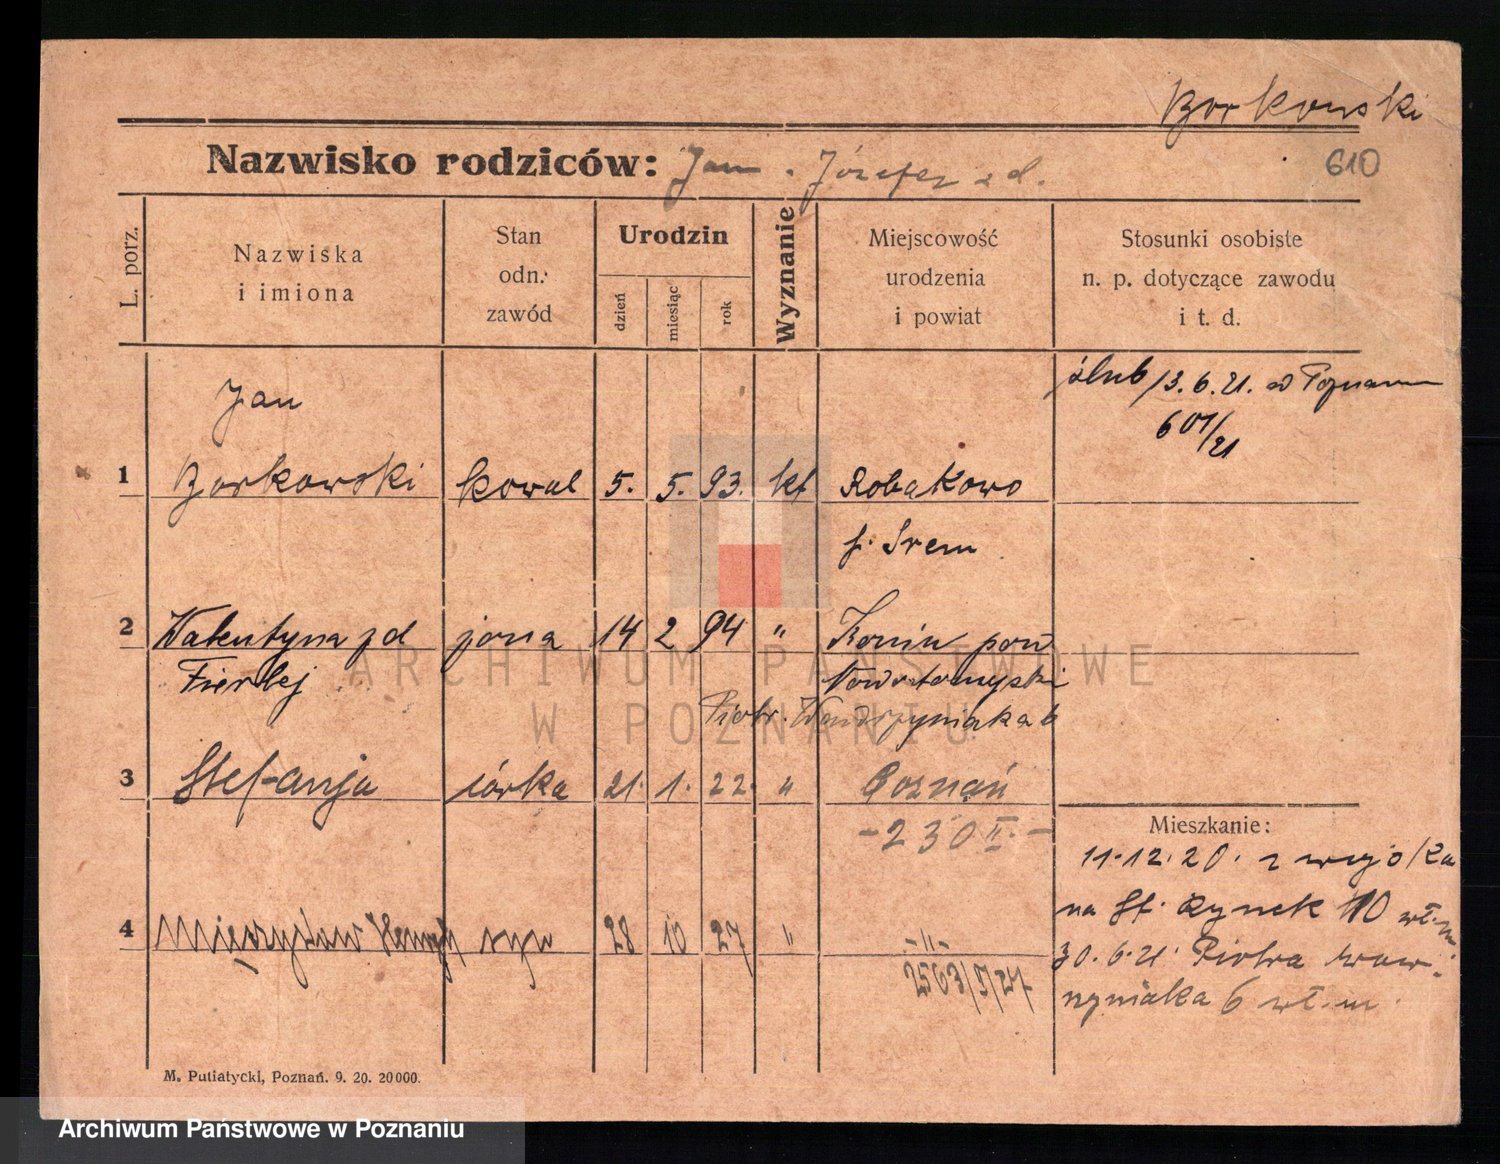 Borkowski
Nazwisko rodziców: Jan. Józefa z d.
610
L. porz.
Nazwiska
i imiona
Stan
odn.
zawód
Urodzin
dzień
miesiąc
rok
Wyznanie
Miejscowość
urodzenia
i powiat
Stosunki osobiste
n. p. dotyczące zawodu
i t. d.
ślub 13.6.21. w Poznaniu
601/21
Jan
1 Borkowski kowal 5. 5. 93. kt Robakowo
p. Śrem
2 Walentyna zd żona 14 2 94 " Konin pow
Nowotomyski
Piotr. Wawrzyniaka 6
3 Stefanja córka 21. 1. 22. " Poznań
- 230 II. -
4 Mieczysław syn 28 10 27 " -"-
Mieszkanie:
11.12.20. z wojska
na St. Rynek 110 wł. m
30.6.21. Piotra Waw-
rzyniaka 6 wł. m.
M. Putiatycki, Poznań. 9. 20. 20000.
ARCHIWUM PAŃSTWOWE
W POZNANIU
Archiwum Państwowe w Poznaniu